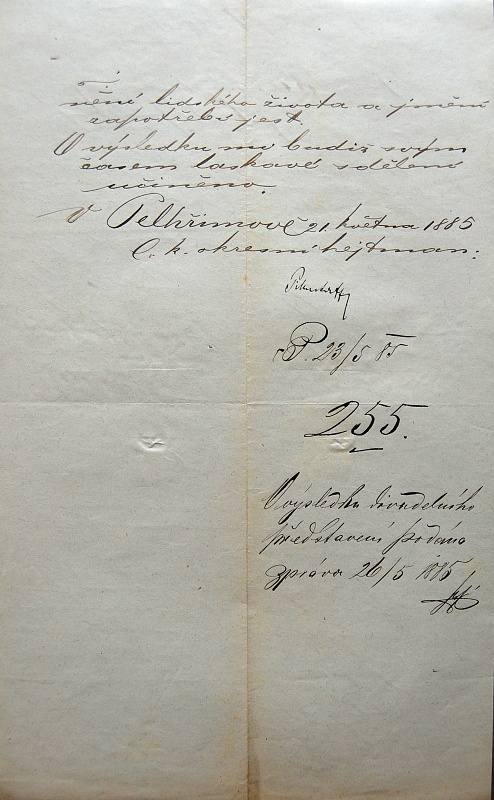 nění lidského života a jmění
zapotřebí jest.
O výsledku mi budiž svým
časem laskavé sdělení
učiněno.
V Pelhřimově 21. května 1885
C. k. okresní hejtman:
P. 23/5 85
255.
O výsledku divadelního
představení podána
zpráva 26/5 1885